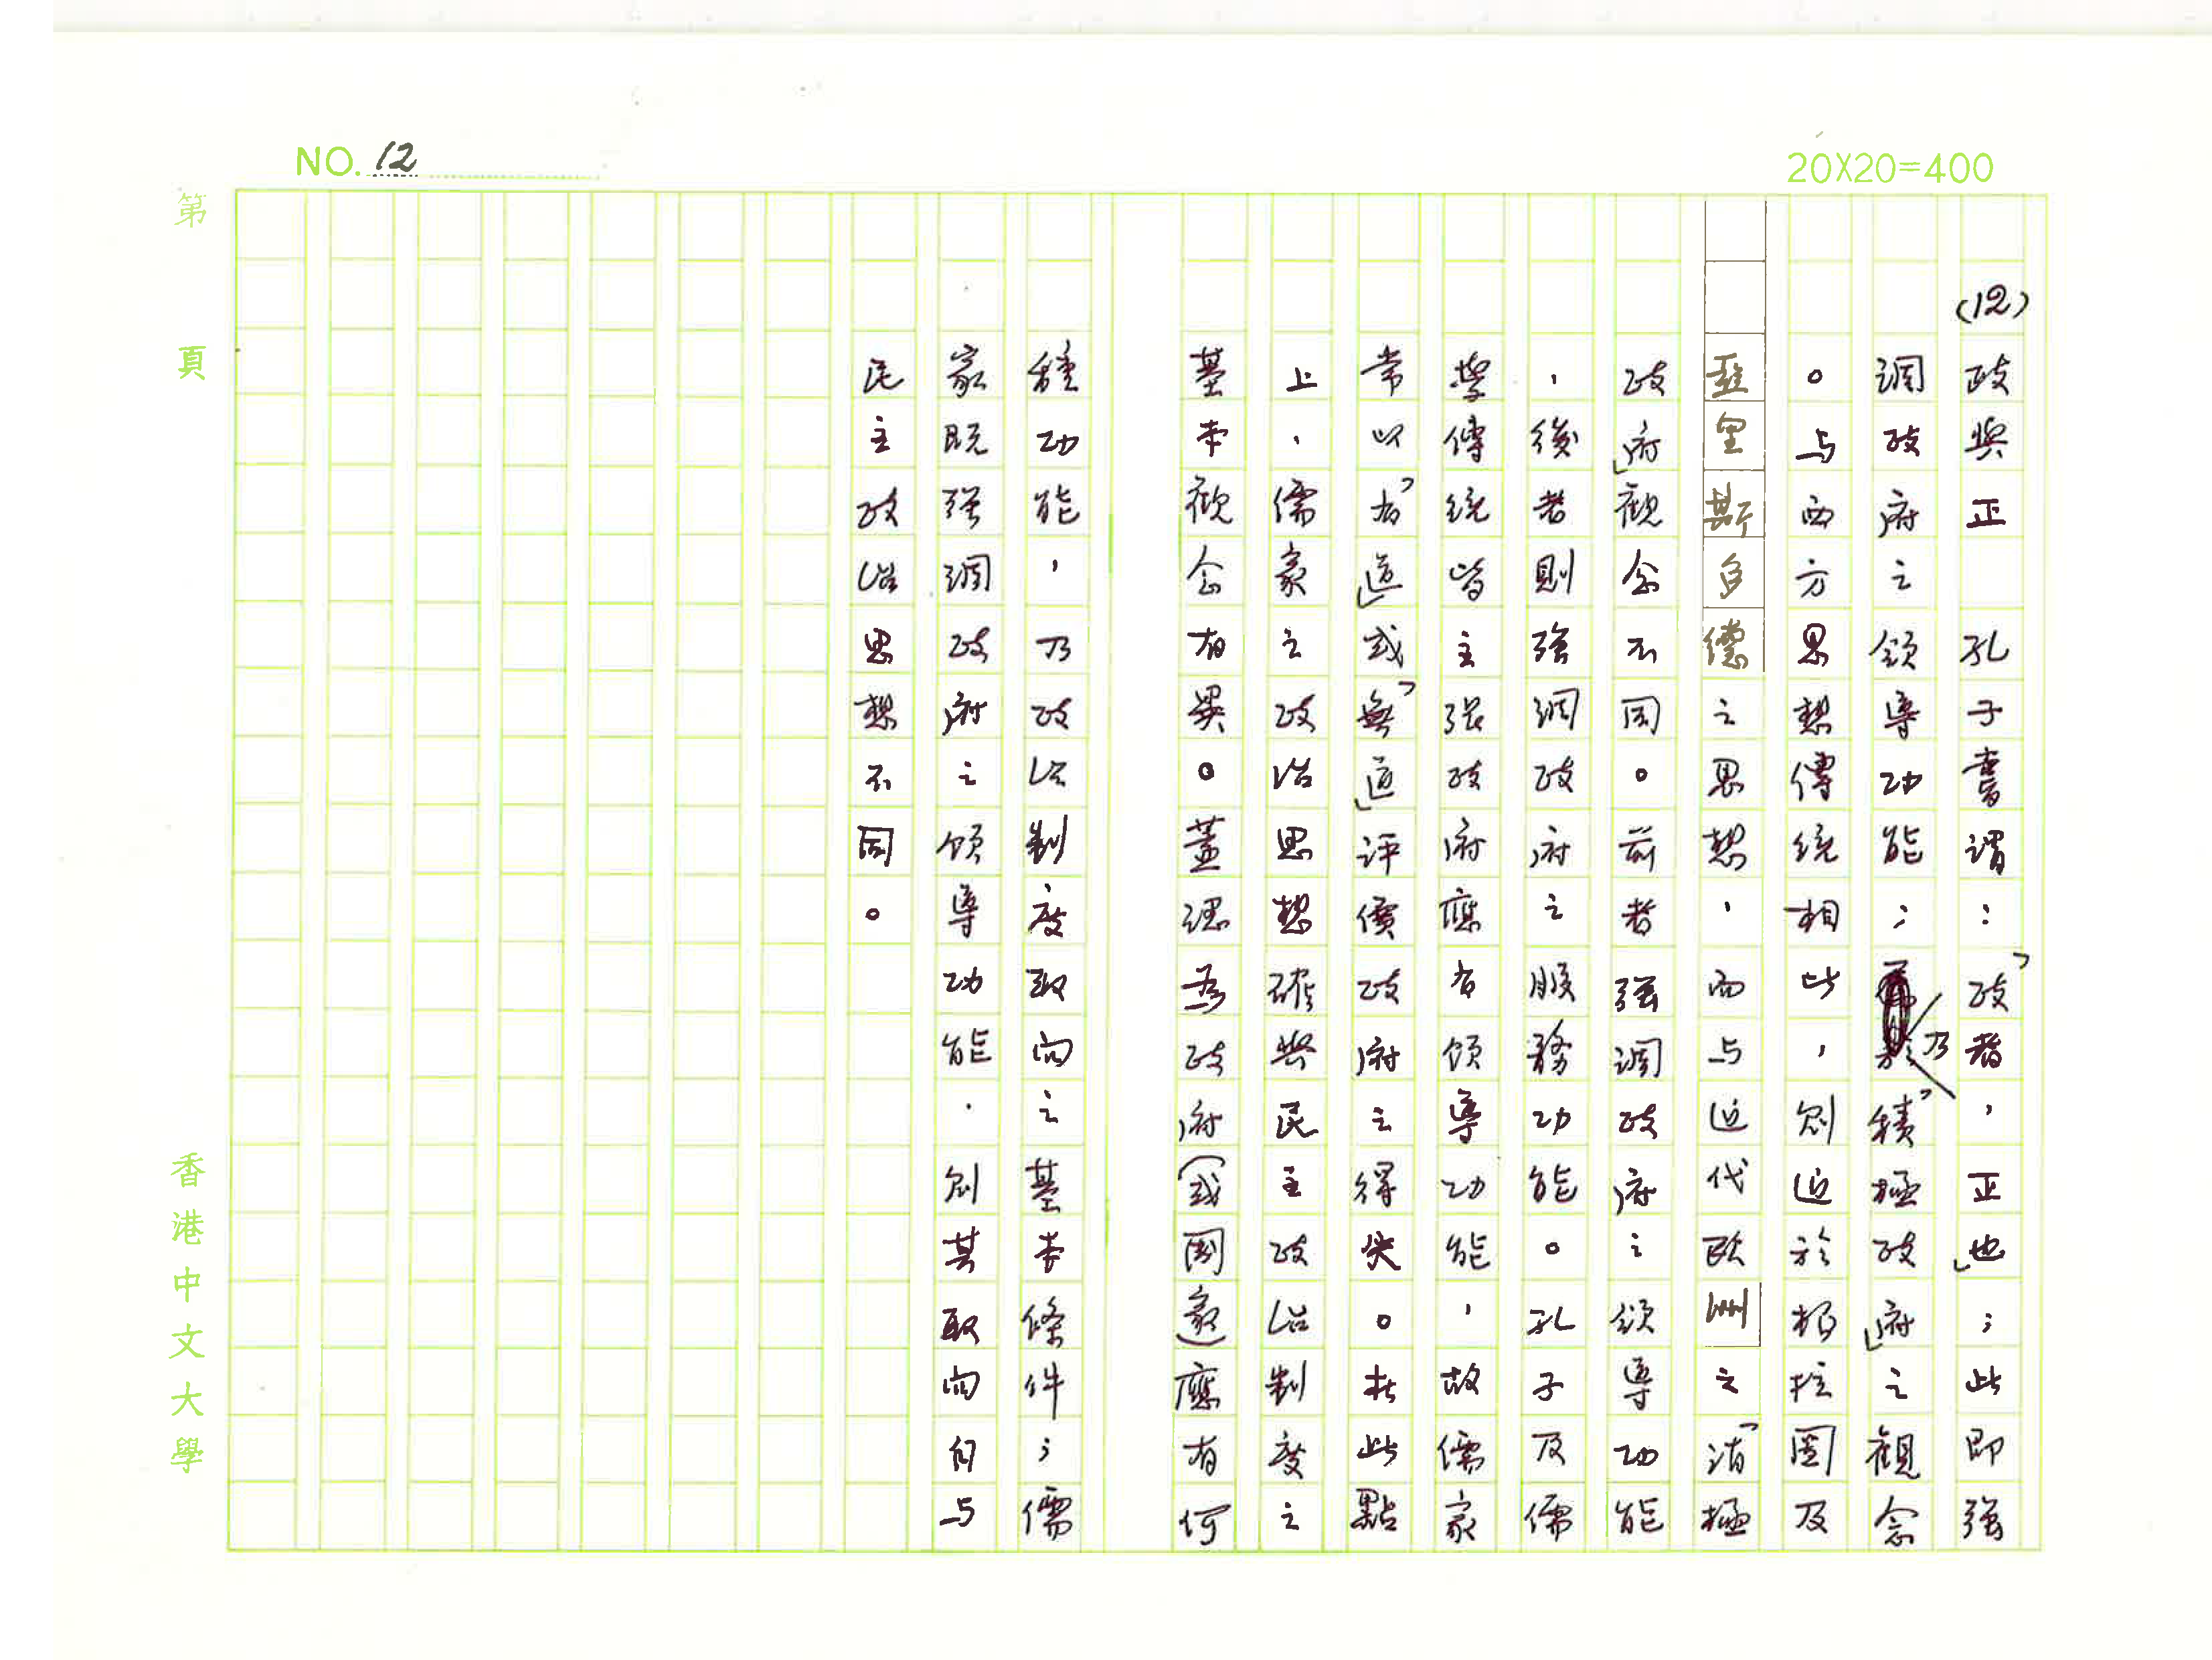 NO. 12
20X20=400
(12) 政與正　孔子嘗謂：「政者，正也」；此即強
調政府之領導功能；乃「積極政府」之觀念
。与西方思想傳統相比，則近於柏拉圖及
亞里斯多德之思想，而与近代歐洲之「消極
政府」觀念不同。前者強調政府之領導功能
，後者則強調政府之服務功能。孔子及儒
學傳統皆主張政府應有領導功能，故儒家
常以「有道」或「無道」評價政府之得失。在此點
上，儒家之政治思想確與民主政治制度之
基本觀念有異。蓋認為政府（或國家）應有何
種功能，乃政治制度取向之基本條件；儒
家既強調政府之領導功能．則其取向自与
民主政治思想不同。
第　頁
香港中文大學